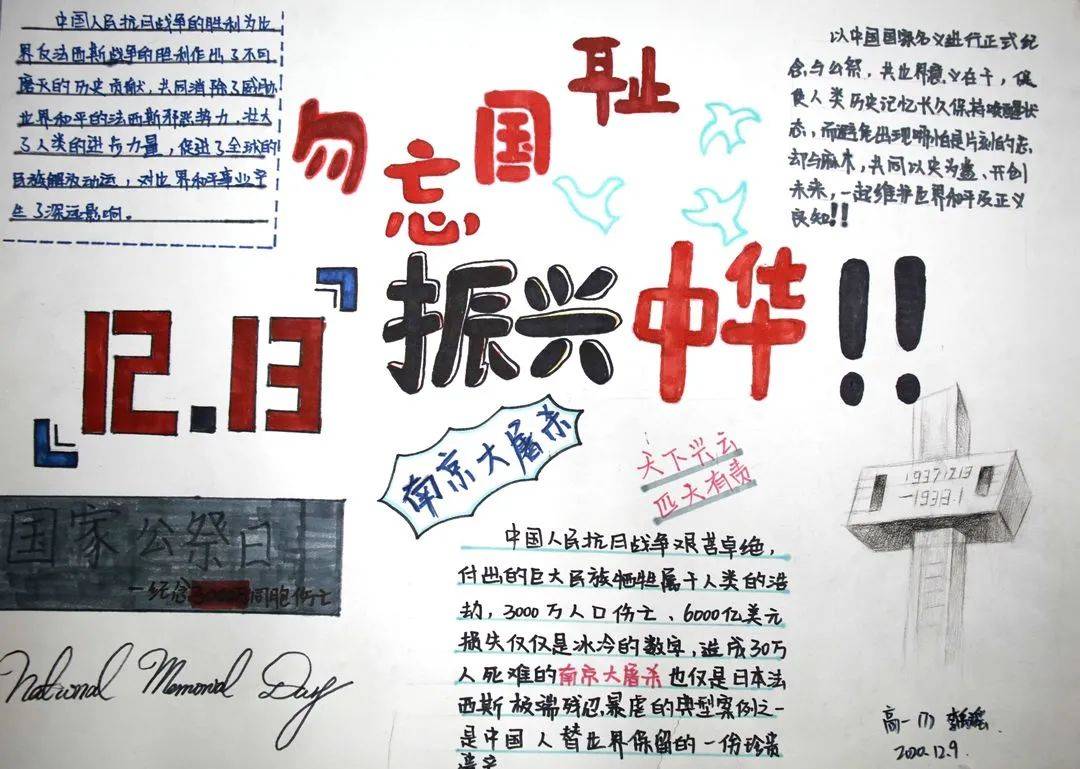 中国人民抗日战争的胜利为世
界反法西斯战争的胜利作出了不可
磨灭的历史贡献,共同消除了威胁
世界和平的法西斯邪恶势力,壮大
了人类的进步力量,促进了全球的
民族解放动运,对世界和平事业产
生了深远影响。
勿忘国耻
以中国国家名义进行正式纪
念与公祭,其世界意义在于,促
使人类历史记忆长久保持唤醒状
态,而避免出现哪怕是片刻的忘
却与麻木,共同以史为鉴、开创
未来,一起维护世界和平及正义
良知!!
振兴中华!!
12.13
南京大屠杀
天下兴亡
匹夫有责
1937.12.13
—1938.1
国家公祭日
—纪念同胞伤亡
National Memorial Day
中国人民抗日战争艰苦卓绝,
付出的巨大民族牺牲属于人类的浩
劫,3000万人口伤亡、6000亿美元
损失仅仅是冰冷的数字,造成30万
人死难的南京大屠杀也仅是日本法
西斯极端残忍、暴虐的典型案例之一
是中国人替世界保留的一份珍贵
高一(7)
2020.12.9.